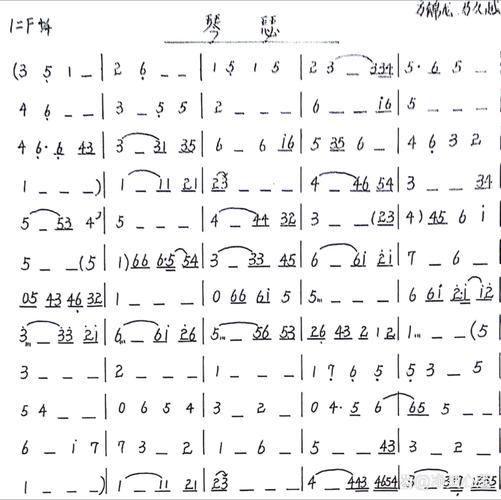 琴 瑟
1=F 4/4
(3 5 1 – | 2 6 – – | 1 5 1 5 | 2 3 – 334 | 5· 6 5 –
4 6 – – | 3 – 5 5 | 2 – – – | 6 – – i6 | 5 – – –
4 6· 6 43 | 3 – 31 35 | 6 – 6 i6 | 5 35 6 – | 4 6 3 2
1 – – –) | 1 – 11 21 | 23 – – – | 4 – 46 54 | 3 – – 34
5 – 53 4 | 5 – – – | 4 – 44 32 | 3 – – (23 | 4) 45 6 i
5 – – (5 | 1) 66 6·5 54 | 3 – 33 45 | 6 – 6i 2i | 7 – 6 –
05 43 46 32 | 1 – – – | 0 66 6i 5 | 5 – – – | 6 6i 2i i2
3 – 33 2i | 6 – 6i 26 | 5 – 56 53 | 26 43 2 12 | 1 – – (5
3 – – – | 2 – – – | 1 – – – | 1 7 6 5 | 5 3 – 5
5 4 – – | 0 6 5 4 | 3 – 2 – | 0 4· 5 6 | 65 5 – –
6 – i 7 | 7 3 – 2 | 1 – 6 – | 5 – – 43 | 3 – 2 –
1 – – –) | 1 – 11 21 | 23 – – – | 4 – 443 4654 | 3